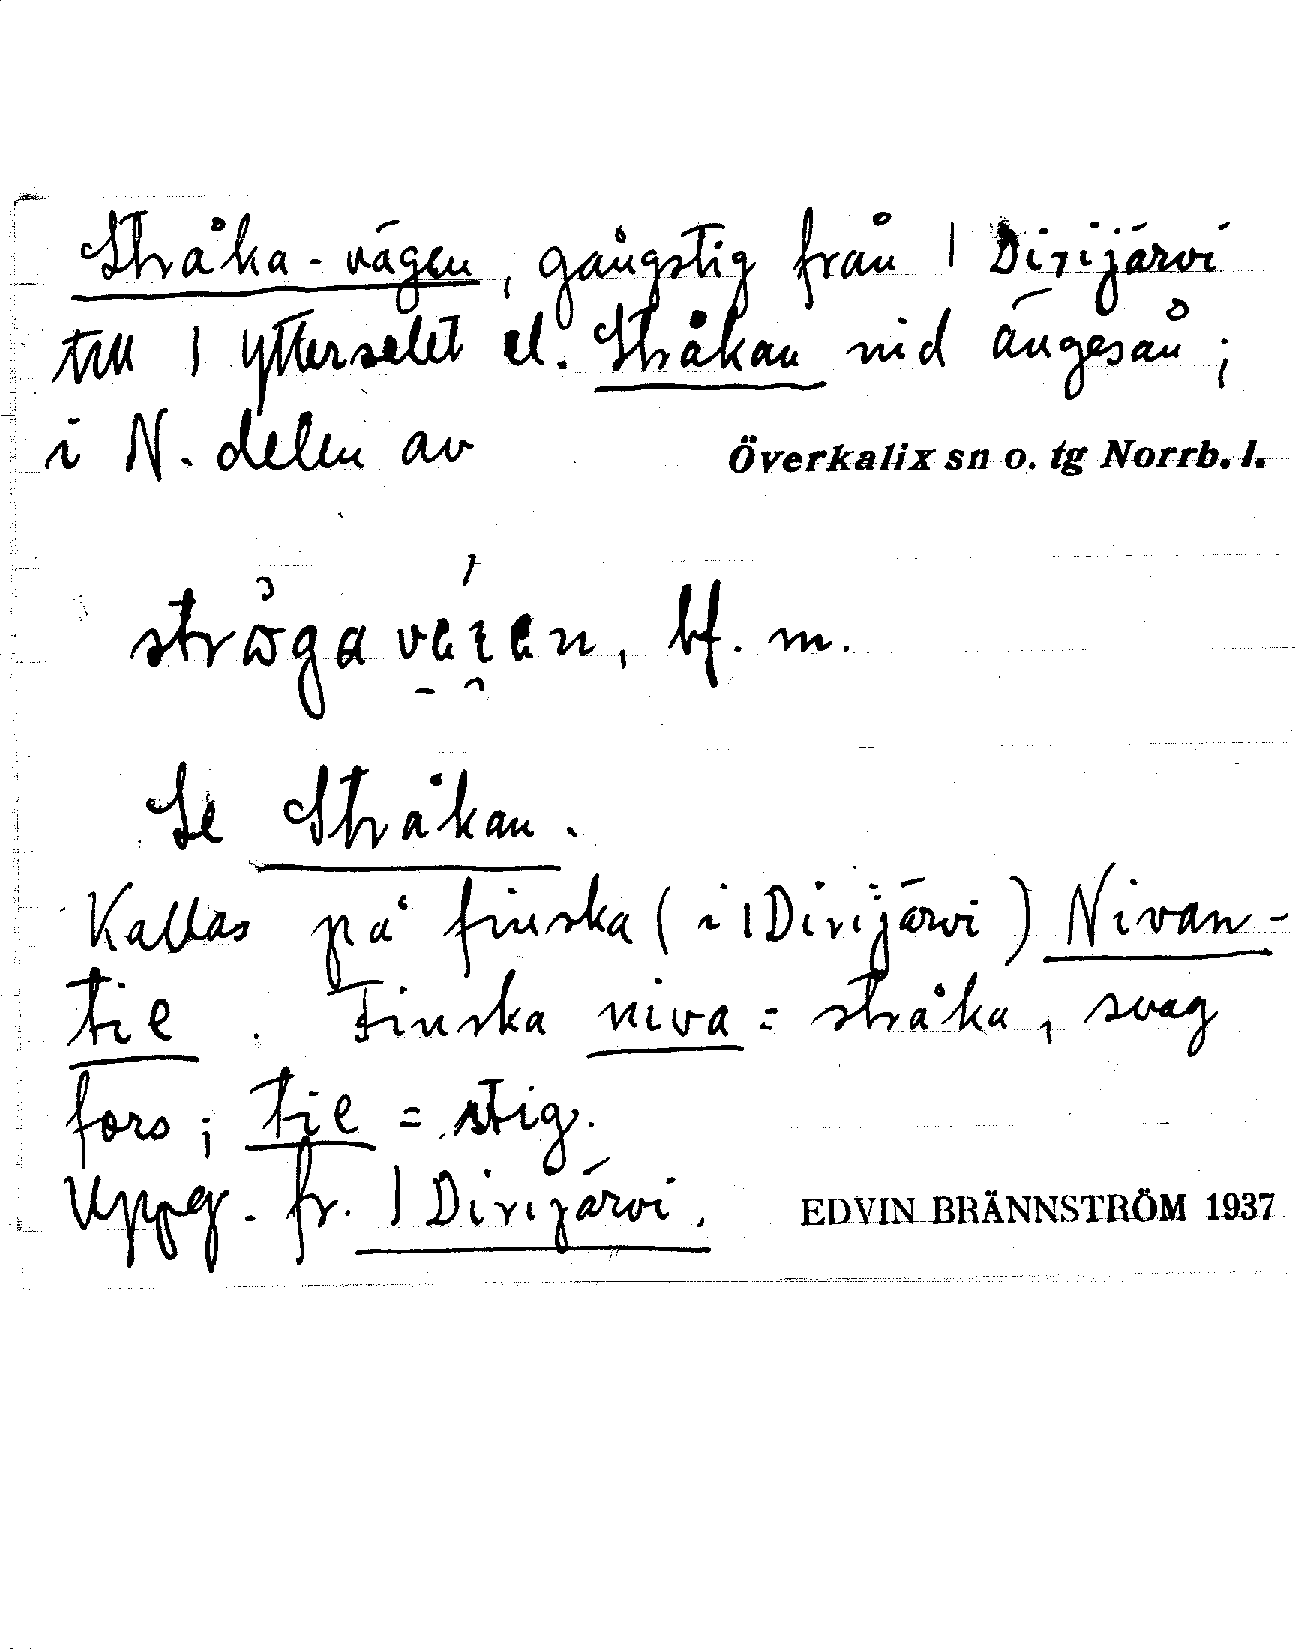 Stråka-vägen, gångstig från 1 Dirijärvi
till 1 Ytterselet el. Stråkan vid Ängesån;
i N. delen av Överkalix sn o. tg Norrb. l.
bf. m.
Se Stråkan.
Kallas på finska (i 1 Dirijärvi) Nivan-
tie. Finska niva = stråka, svag
fors; tie = stig.
Uppg. fr. 1 Dirijärvi. EDVIN BRÄNNSTRÖM 1937